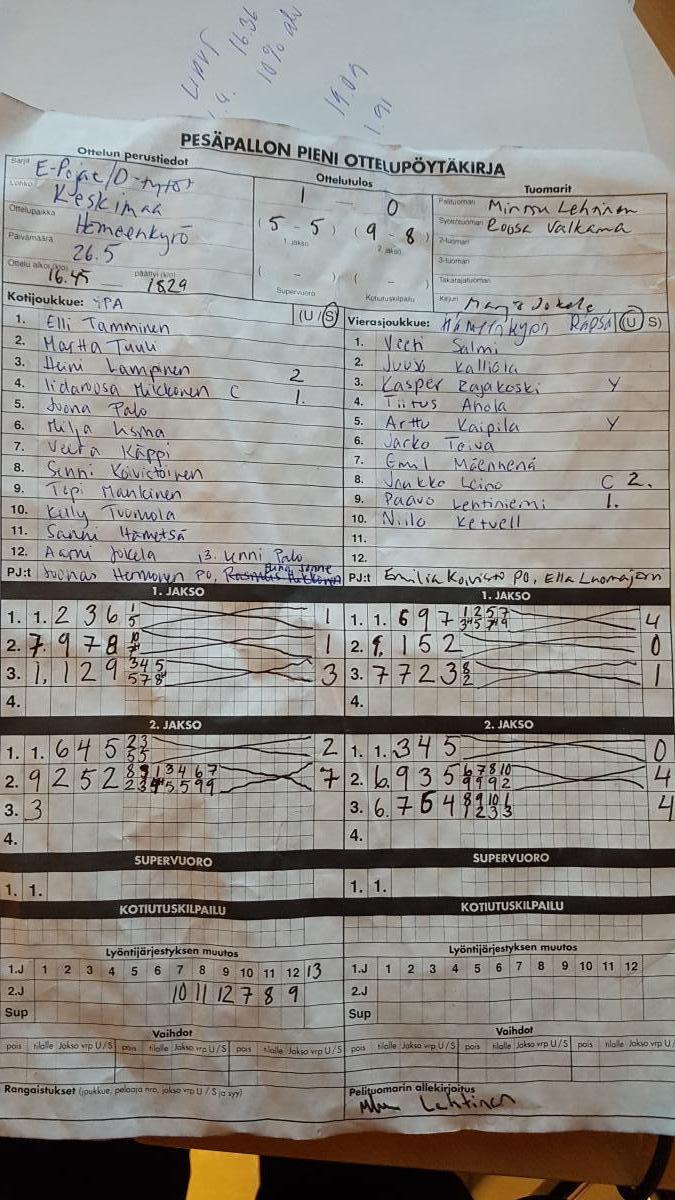 1.4. 16.36
10% alv
19.09
1.91
PESÄPALLON PIENI OTTELUPÖYTÄKIRJA
Ottelun perustiedot
Sarja E-Pojat/D-tytöt
Lohko Keskimaa
Ottelupaikka Hämeenkyrö
Päivämäärä 26.5
Ottelu alkoi (klo) 16.45 päättyi (klo) 1829
Ottelutulos
1 — 0
(5 - 5) (9 - 8)
1. jakso 2. jakso
( - ) ( - )
Supervuoro Kotiutuskilpailu
Tuomarit
Pelituomari Minttu Lehtinen
Syöttötuomari Roosa Valkama
2-tuomari
3-tuomari
Takarajatuomari
Kirjuri Jokela
Kotijoukkue: YPA (U / S)
1. Elli Tamminen
2. Martta Tuuli
3. Heini Lampinen 2
4. Iidaroosa Mikkonen C 1.
5. Joona Palo
6. Milja Usma
7. Veeta Käppi
8. Sinni Koivistoinen
9. Topi Mankinen
10. Kelly Tuomola
11. Sanni
12. Aarni Jokela 13. Unni Palo
PJ:t Joonas Hermonen PO, Rasmus Mikkonen
Vierasjoukkue: Hämeenkyrön Räpsä (U S)
1. Veeti Salmi
2. Juuso Kalliola
3. Kasper Rajakoski Y
4. Tiitus Ahola
5. Arttu Kaipila Y
6. Jarko Toiva
7. Emil Mäennenä
8. Jaakko Leino C 2.
9. Paavo Lehtiniemi 1.
10. Niilo Ketvell
11.
12.
PJ:t Emilia Koivisto PO, Ella
1. JAKSO
1. 1. 2 3 6 1 5 1
2. 7. 9 7 8 1
3. 1, 1 2 9 3 4 5 5 7 8 3
4.
1. JAKSO
1. 1. 6 9 7 4
2. 9. 1 5 2 0
3. 7 7 2 3 8 2 1
4.
2. JAKSO
1. 1. 6 4 5 2 3 5 5 2
2. 9 2 5 2 7
3. 3
4.
2. JAKSO
1. 1. 3 4 5 0
2. 6. 9 3 5 6 7 8 10 9 9 9 2 4
3. 6. 7 6 4 8 9 10 1 1 2 3 3 4
4.
SUPERVUORO
1. 1.
SUPERVUORO
1. 1.
KOTIUTUSKILPAILU
KOTIUTUSKILPAILU
Lyöntijärjestyksen muutos
1.J 1 2 3 4 5 6 7 8 9 10 11 12 13
2.J 10 11 12 7 8 9
Sup
Lyöntijärjestyksen muutos
1.J 1 2 3 4 5 6 7 8 9 10 11 12
2.J
Sup
Vaihdot
pois tilalle Jakso vrp U / S pois tilalle Jakso vrp U / S pois tilalle Jakso vrp U / S
Vaihdot
pois tilalle Jakso vrp U / S pois tilalle Jakso vrp U / S pois tilalle Jakso vrp U /
Rangaistukset (joukkue, pelaaja nro, jakso vrp U / S ja syy)
Pelituomarin allekirjoitus
Lehtinen